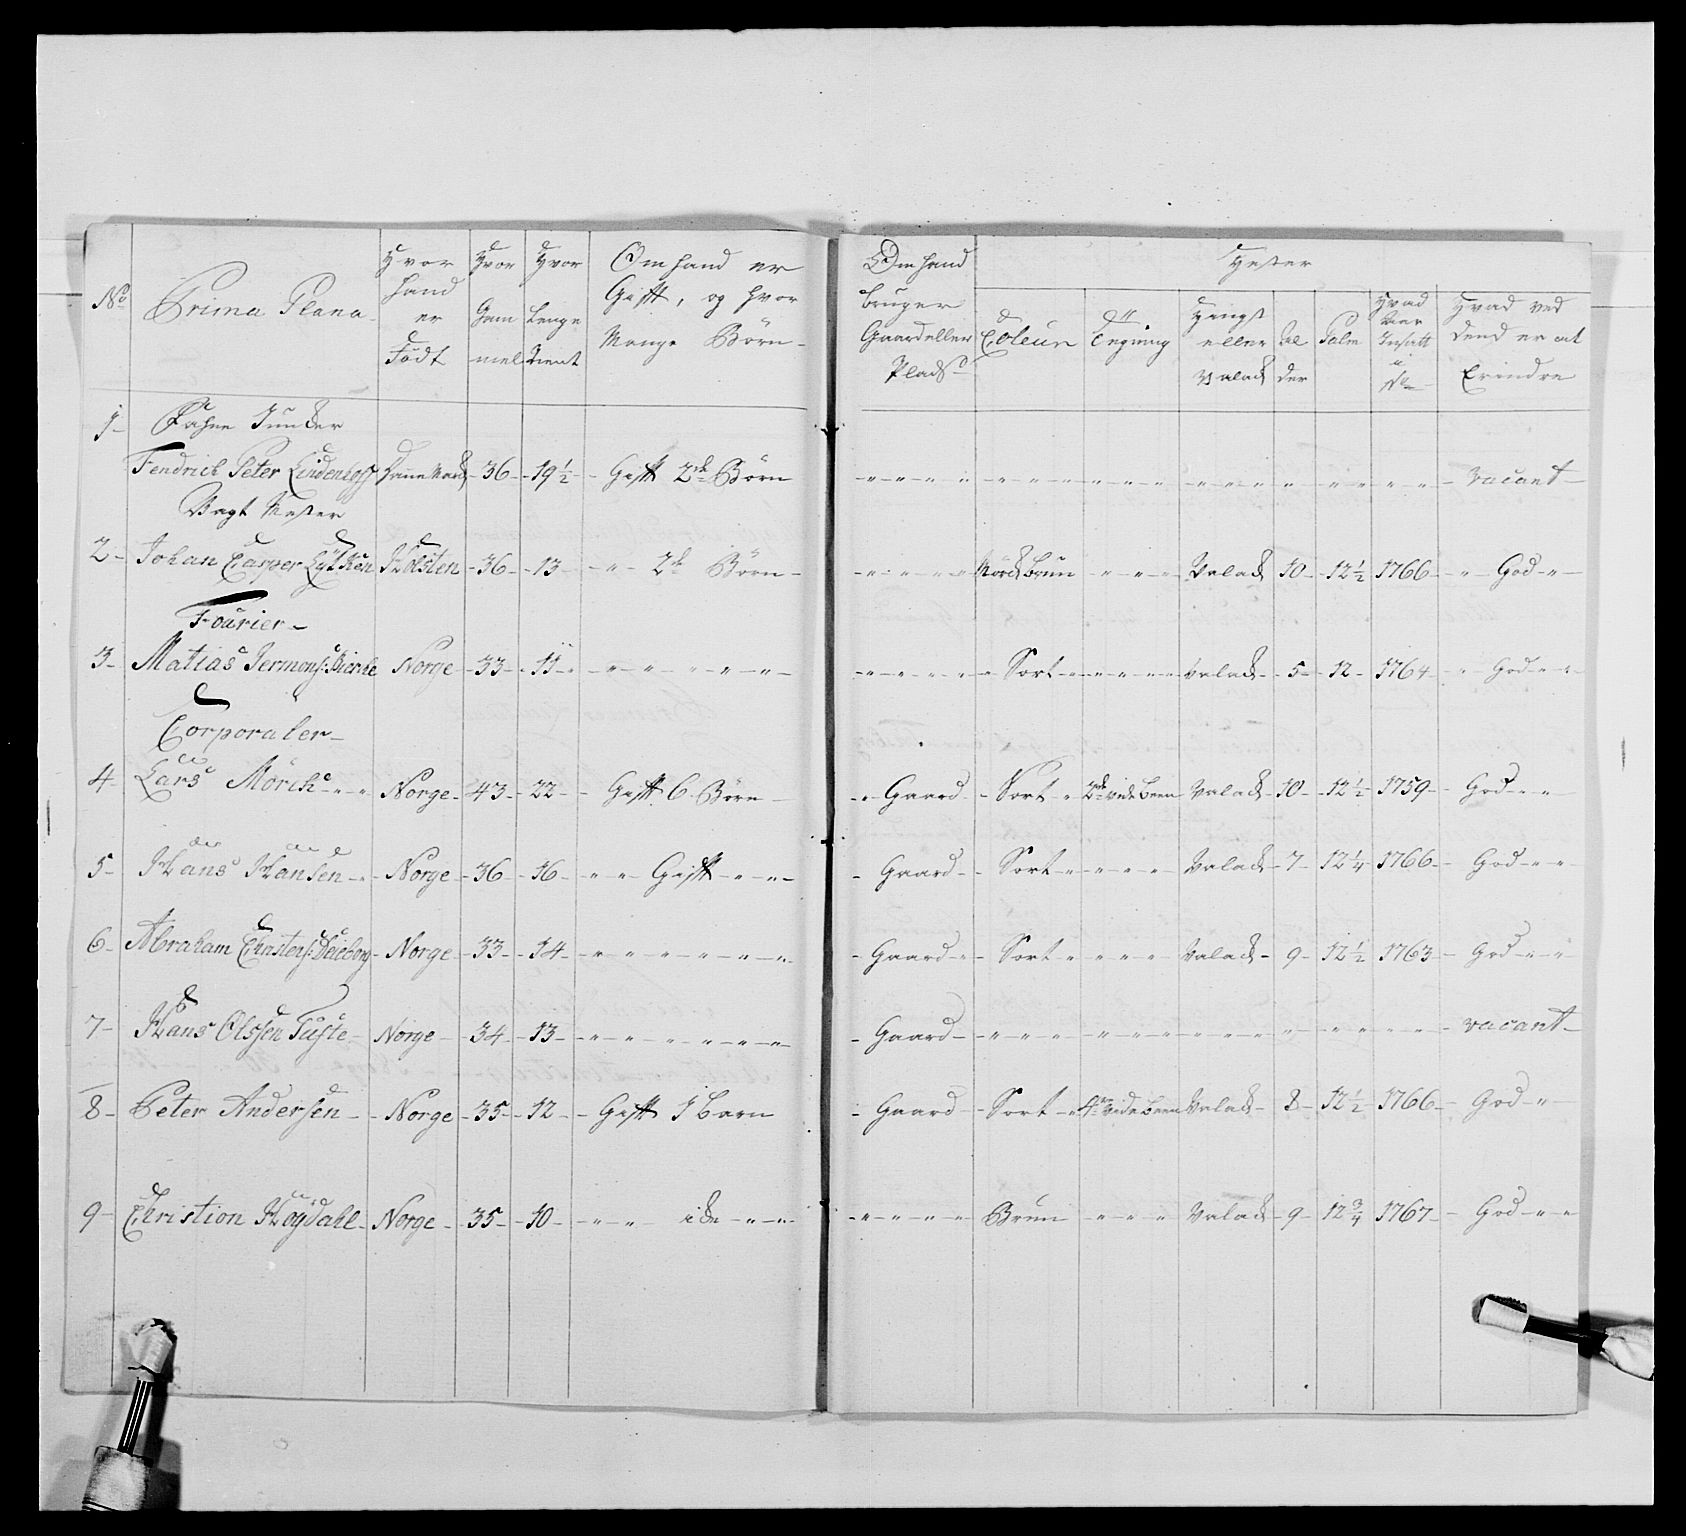 No Prima Plana Hvor hand er Födt Hvor Gammel Hvor Lenge Tient Om hand er Gift, og hvor Mange Börn Om hand bruger Gaard eller Plads Hester Coleur Tegning Hingst eller Valack Alder Palm Hvad Aar Indsatt i No Hvad ved dend er at Erindre
1 Fahne Junker
Fendrich Peter Lindenhoff Dannemark 36 19 1/2 Gift 2de Börn vacant
Vagt Mester
2 Johan Casper Lütken Holsten 36 13 " 2de Börn Mörck Brun Valack 10 12 1/2 1766 God
Fourier
3 Matias Jermons: Bierke Norge 33 11 Sort Valack 5 12 1764 God
Corporaler
4 Lars Mörch Norge 43 22 Gift 6 Börn Gaard Sort 2de vide Been Valack 10 12 1/2 1759 God
5 Hans Hansen Norge 36 16 Gift Gaard Sort Valack 7 12 1/4 1766 God
6 Abraham Christens: Norge 33 14 Gaard Sort Valack 9 12 1/2 1763 God
7 Hans Olssen Tuste Norge 34 13 Gaard vacant
8 Peter Andersen Norge 35 12 Gift 1 Barn Gaard Sort 4re vide Been Valack 8 12 1/2 1766 God
9 Christion Höydahl Norge 35 10 Brun Valack 9 12 3/4 1767 God